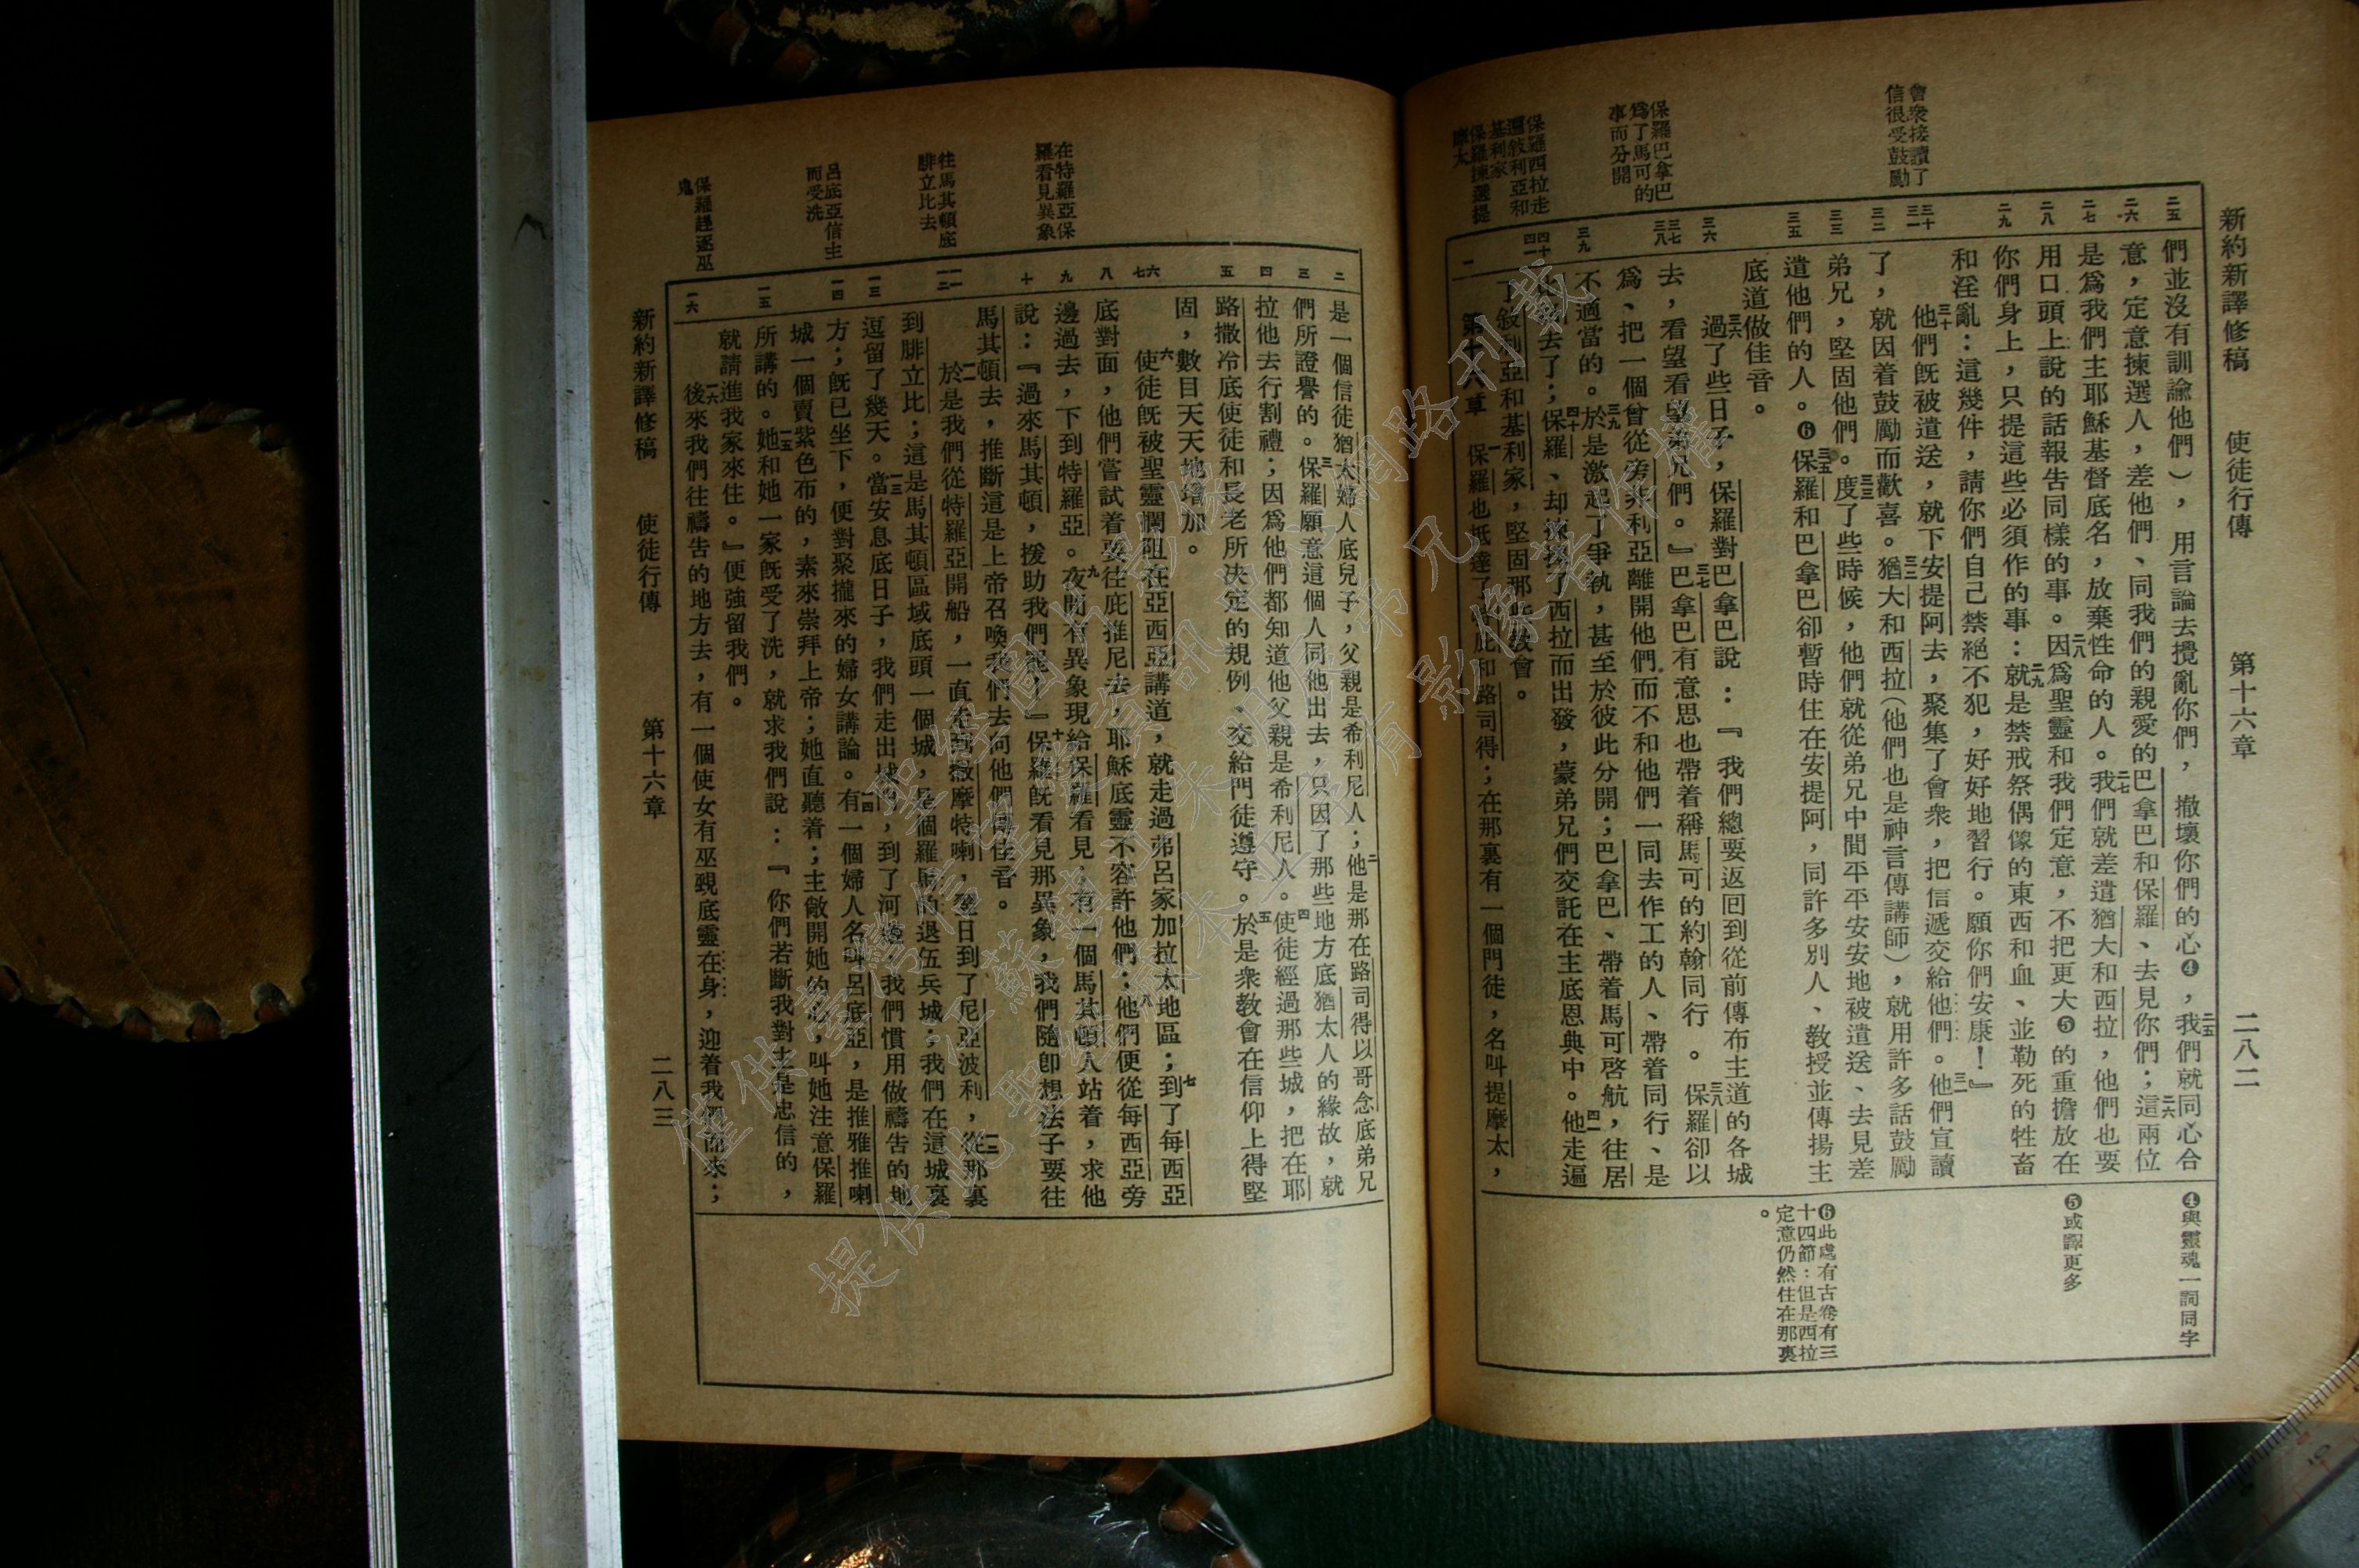 新約新譯修稿　使徒行傳　第十六章　二八二
會衆接讀了
信很受鼓勵
保羅巴拿巴
爲了馬可的
事而分開
保羅西拉走
遍敘利亞和
基利家
保羅揀選提
摩太
二五　二六　二七　二八　二九　三十　三一　三二　三三　三五　三六　三七　三八　三九　四十　四一　一
們並沒有訓諭他們），用言論去攪亂你們，撤壞你們的心❹，二五我們就同心合
意，定意揀選人，差他們、同我們的親愛的巴拿巴和保羅、去見你們；二六這兩位
是爲我們主耶穌基督底名，放棄性命的人。二七我們就差遣猶大和西拉，他們也要
用口頭上說的話報告同樣的事。二八因爲聖靈和我們定意，不把更大❺的重擔放在
你們身上，只提這些必須作的事：二九就是禁戒祭偶像的東西和血、並勒死的牲畜
和淫亂：這幾件，請你們自己禁絕不犯，好好地習行。願你們安康！』
三十他們旣被遣送，就下安提阿去，聚集了會衆，把信遞交給他們。三一他們宣讀
了，就因着鼓勵而歡喜。三二猶大和西拉（他們也是神言傳講師），就用許多話鼓勵
弟兄，堅固他們。三三度了些時候，他們就從弟兄中間平平安安地被遣送、去見差
遣他們的人。❻三五保羅和巴拿巴卻暫時住在安提阿，同許多別人、教授並傳揚主
底道做佳音。
三六過了些日子，保羅對巴拿巴說：『我們總要返囘到從前傳布主道的各城
去，看望看望弟兄們。』三七巴拿巴有意思也帶着稱馬可的約翰同行。三八保羅卻以
爲、把一個曾從旁非利亞離開他們而不和他們一同去作工的人、帶着同行、是
不適當的。三九於是激起了爭執，甚至於彼此分開；巴拿巴、帶着馬可啓航，往居
去了；四十保羅、却揀擇了西拉而出發，蒙弟兄們交託在主底恩典中。四一他走遍
了敘利亞和基利家，堅固那些教會。
第十六章　一保羅也抵達了 此和路司得；在那裏有一個門徒，名叫提摩太，
❹與靈魂一詞同字
❺或譯更多
❻此處有古卷有三
十四節：但是西拉
定意仍然住在那裏
。
在特羅亞保
羅看見異象
往馬其頓底
腓立比去
呂底亞信主
而受洗
保羅趕逐巫
鬼
二　三　四　五　六　七　八　九　十　一一　一二　一三　一四　一五　一六
是一個信徒猶太婦人底兒子，父親是希利尼人；二他是那在路司得以哥念底弟兄
們所證譽的。三保羅願意這個人同他出去，只因了那些地方底猶太人的緣故，就
拉他去行割禮；因爲他們都知道他父親是希利尼人。四使徒經過那些城，把在耶
路撒冷底使徒和長老所決定的規例、交給門徒遵守。五於是衆教會在信仰上得堅
固，數目天天地增加。
六使徒旣被聖靈攔阻在亞西亞講道，就走過弗呂家加拉太地區；七到了每西亞
底對面，他們嘗試着要往庇推尼去，耶穌底靈不容許他們；八他們便從每西亞旁
邊過去，下到特羅亞。九夜間有異象現給保羅看見：有一個馬其頓人站着，求他
說：『過來馬其頓，援助我們罷！』十保羅旣看見那異象，我們隨卽想法子要往
馬其頓去，推斷這是上帝召喚我們去向他們傳佳音。
一一於是我們從特羅亞開船，一直走到撒摩特喇，翌日到了尼亞波利，一二從那裏
到腓立比；這是馬其頓區域底頭一個城，是個羅馬的退伍兵城；我們在這城裏
逗留了幾天。一三當安息底日子，我們走出城門，到了河邊，我們慣用做禱告的地
方；旣已坐下，便對聚攏來的婦女講論。一四有一個婦人名叫呂底亞，是推雅推喇
城一個賣紫色布的，素來崇拜上帝；她直聽着；主敞開她的心，叫她注意保羅
所講的。一五她和她一家旣受了洗，就求我們說：『你們若斷我對主是忠信的，
就請進我家來住。』便強留我們。
一六後來我們往禱告的地方去，有一個使女有巫覡底靈在身，迎着我們而來；
新約新譯修稿　使徒行傳　第十六章　二八三